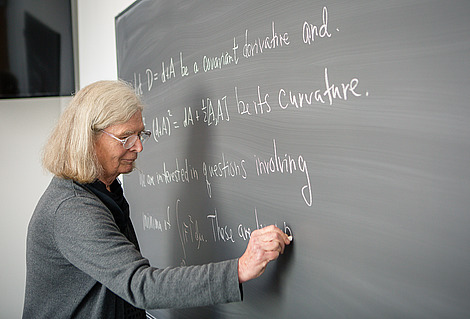 Let D = d+A be a covariant derivative and.
(d+A)² = dA + ½[A,A] be its curvature.
We are interested in questions involving
minima of ∫ F² dμ. These are